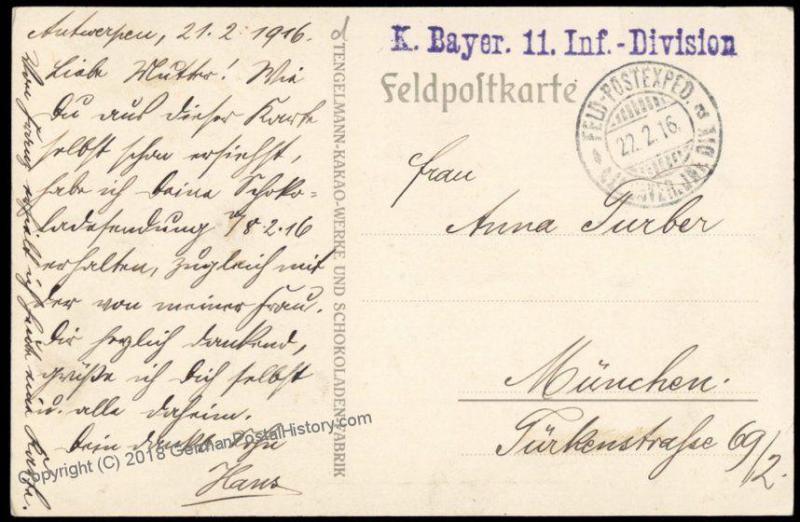 Antwerpen, 21.2.1916.
Liebe Mutter! Wie
Du aus dieser Karte
selbst schon ersiehst,
habe ich Deine Schoko-
ladesendung v/8.2.16
erhalten, zugleich mit
der von meiner Frau.
Dir herzlich dankend,
grüße ich Dich selbst
u. alle daheim.
Dein dankb. Sohn
Hans
Von erhielt ich heute eine Karte.
TENGELMANN-KAKAO-WERKE UND SCHOKOLADEN-FABRIK
K. Bayer. 11. Inf.-Division
Feldpostkarte
FELD-POSTEXPED.
22.2.16.
Frau
Anna Furber
München.
Türkenstrasse 69/2.
Copyright (C) 2018 GermanPostalHistory.com